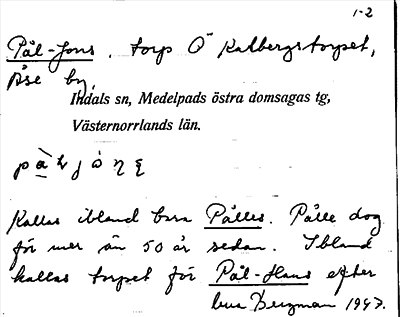 1-2
Pål-Jons. torp Ö Kalbergstorpet,
Åse by,
Indals sn, Medelpads östra domsagas tg,
Västernorrlands län.
Kallas ibland bara Pålles. Pålle dog
för mer än 50 år sedan. Ibland
kallas torpet för Pål-Hans efter
Bergman 1947.